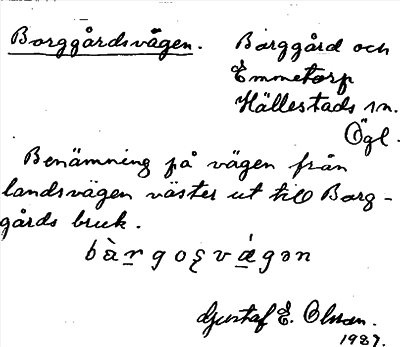 Borggårdsvägen. Borggård och
Emmetorp
Hällestads sn.
Ögl.
Benämning på vägen från
landsvägen väster ut till Borg-
gårds bruk.
bàrgogvágən
Gustaf E. Olsson.
1987.